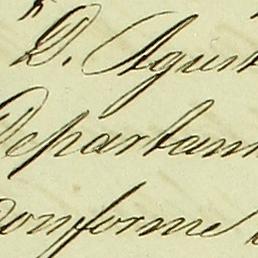 "D. Agust
Departam
Conforme